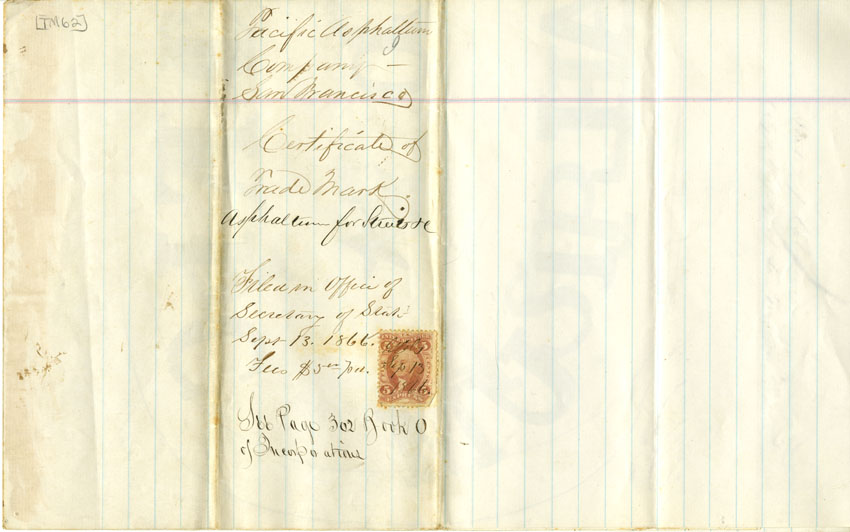 [TM62]
Pacific Asphaltum
Company –
San Francisco
Certificate of
Trade Mark.
Asphaltum for Streets &c
Filed in Office of
Secretary of State
Sept 13. 1866.
Fees $5 pd.
See Page 302 Book O
of Incorporations
5 5
EXPRESS